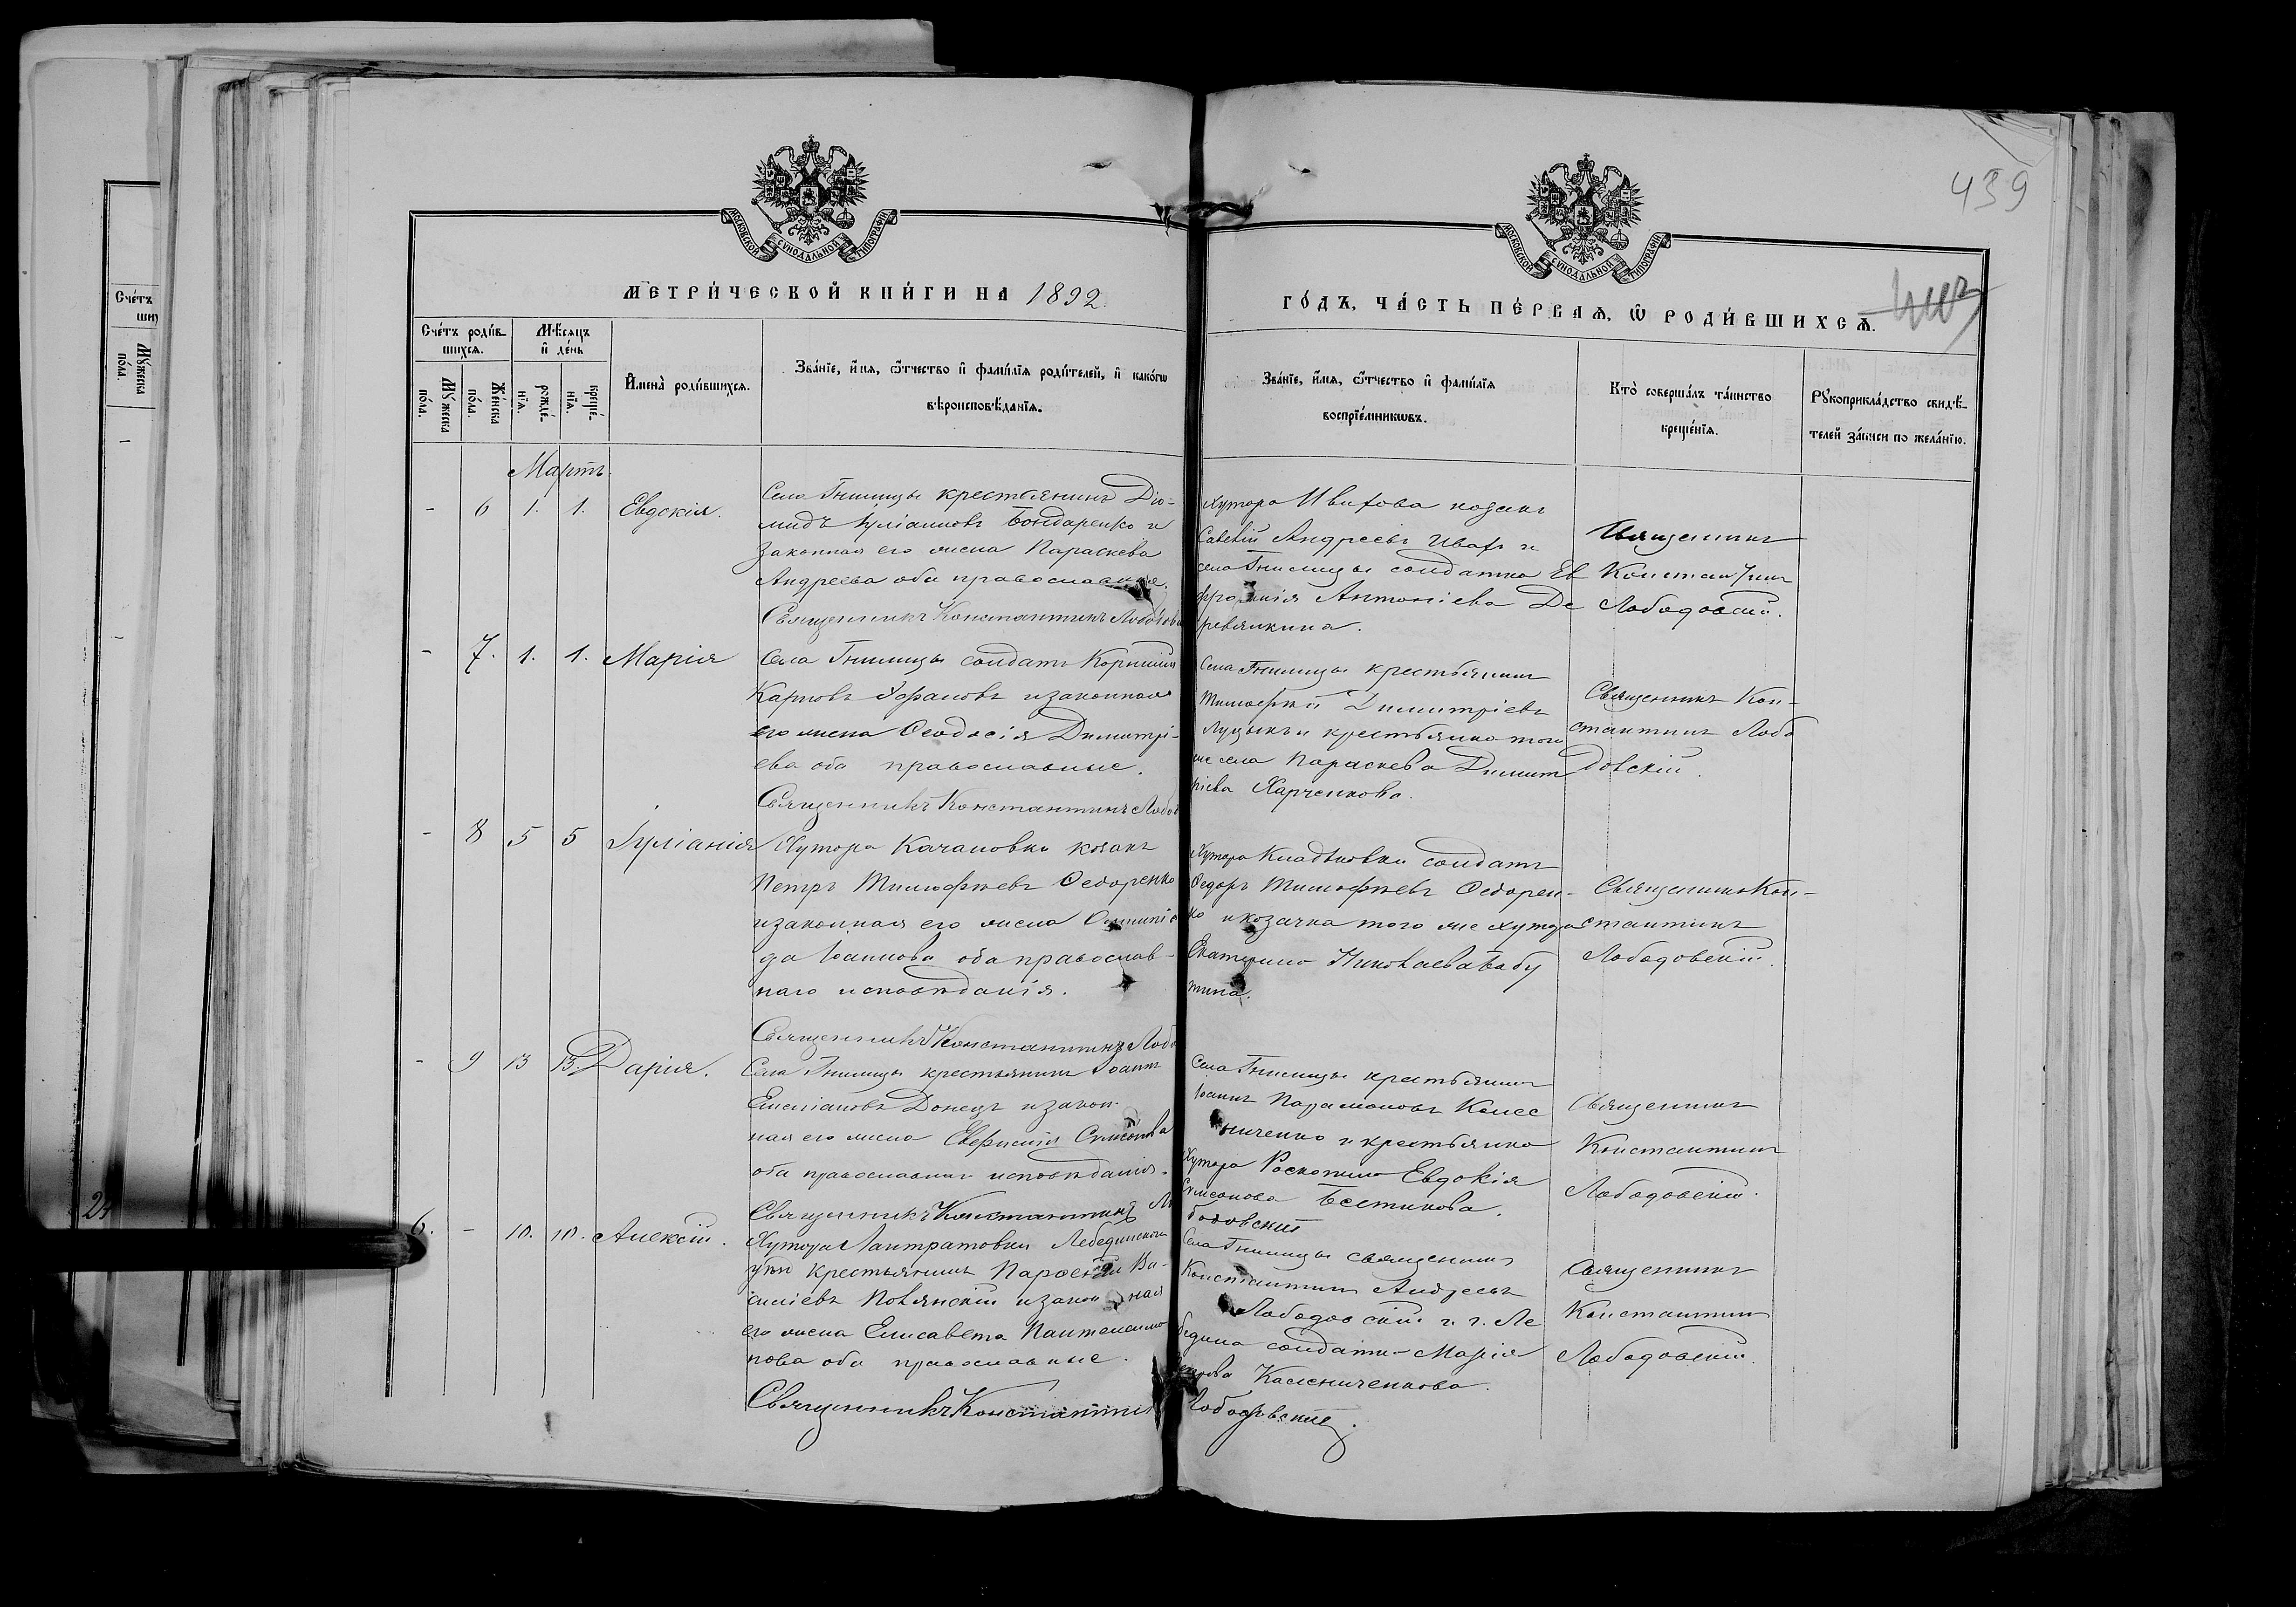 439
МОСКОВСКОЙ СѴНОДАЛЬНОЙ ТИПОГРАФІИ
МОСКОВСКОЙ СѴНОДАЛЬНОЙ ТИПОГРАФІИ
МЕТРИ́ЧЕСКОЙ КНИ́ГИ НА 1892.
ГО́ДЪ, ЧА́СТЬ ПЕ́РВАѦ, Ѿ РОДИ́ВШИХСѦ.
Сче́тъ роди́вшихсѧ.
Мꙋ́жеска по́ла.
Же́нска по́ла.
Мѣ́сяцъ и҆ де́нь
рожде́нїѧ.
креще́нїѧ.
И҆мена̀ роди́вшихсѧ.
Зва́нїе, и҆́мѧ, ѻ҆́тчество и҆ фами́лїѧ роди́телей, и҆ како́гѡ
вѣроисповѣ́данїѧ.
Зва́нїе, и҆́мѧ, ѻ҆́тчество и҆ фами́лїѧ
воспрїе́мникѡвъ.
Кто̀ соверша́лъ та́инство
креще́нїѧ.
Рꙋкоприкла́дство свидѣ́-
телей за́писи по жела́нїю.
Мартъ.
- 6 1. 1. Евдокія.
Села Гнилицы крестьянинъ Діо-
мидъ Іуліановъ Бондаренко и
законная его жена Параскева
Андреева оба православные.
Священникъ Константинъ Лободов
Хутора Ивахова козакъ
Савелій Андреевъ Ивах и
села Гнилицы солдатка Ев
фросинія Антоніева Де
ревянкина.
Священникъ
Константинъ
Лободовскій.
- 7. 1. 1. Марія
Села Гнилицы солдатъ Корнилій
Карповъ и законная
его жена Ѳеодосія Димитрі-
ева оба православные.
Священникъ Константинъ Лобод
Села Гнилицы крестьянинъ
Тимоѳей Димитріевъ
и крестьянка того
же села Параскева Димит
ріева Харченкова.
Священникъ Кон-
стантинъ Лобо
довскій.
- 8 5 5 Іуліанія
Хутора Качановки козакъ
Петръ Тимоѳѣевъ Ѳедоренко
и законная его жена
да Іоаннова оба православ-
наго исповѣданія.
Священникъ Константинъ Лобо
Хутора солдатъ
Ѳедоръ Тимоѳѣевъ Ѳедорен-
ко и козачка того же хутора
Екатерина Николаева Бабу
тина.
Священникъ Кон-
стантинъ
Лободовскій.
- 9 13 13. Дарія.
Села Гнилицы крестьянинъ Іоаннъ
Емеліановъ Донецъ и закон-
ная его жена Евфимія Симеонова
оба православнаго исповѣданія.
Священникъ Константинъ Ло
бодовскій
Села Гнилицы крестьянинъ
Іоаннъ Парамоновъ Колес
ниченко и крестьянка
хутора Евдокія
Симеонова
Священникъ
Константинъ
Лободовскій.
6. - 10. 10. Алексій.
Хутора Лантратовки Лебединскаго
уѣз крестьянинъ Парѳеній Ва-
силіевъ и законная
его жена Елисавета Пантелеимо
нова оба православные.
Священникъ Константинъ Лободовскій.
Села Гнилицы священникъ
Константинъ Андреевъ
Лободовскій и г. Ле
бедина солдатка Марія
Калениченкова.
Священникъ
Константинъ
Лободовскій.
Сче́тъ
Мꙋ́жеска по́ла.